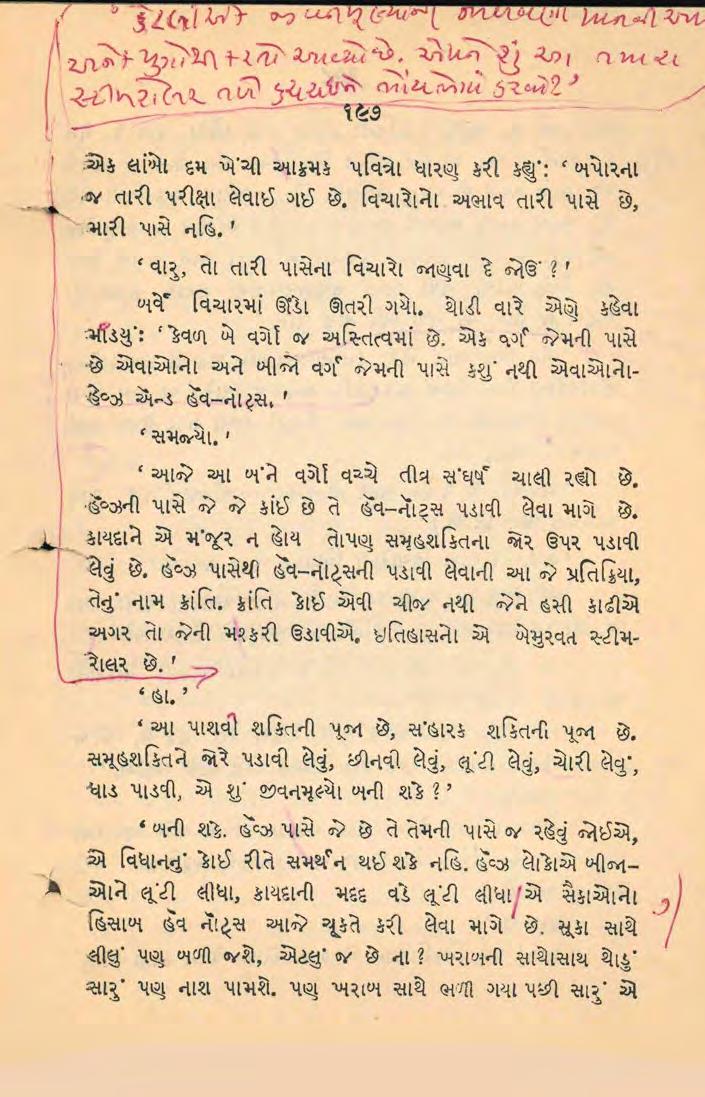 અને યુગોથી કરતો આવ્યો છે. એમને શું આ તમારા
સ્ટીમરોલર તળે કચરાઈને ભોંયભેગાં કરવાં?'
૧૯૭
એક લાંબો દમ ખેંચી આક્રમક પવિત્રો ધારણ કરી કહ્યું: ‘ બપોરના
જ તારી પરીક્ષા લેવાઈ ગઈ છે. વિચારોનો અભાવ તારી પાસે છે,
મારી પાસે નહિ.'
‘ વારુ, તો તારી પાસેના વિચારો જાણવા દે જોઉં ?'
બર્વે વિચારમાં ઊંડો ઊતરી ગયો. થોડી વારે એણે કહેવા
માંડયું: ‘ કેવળ બે વર્ગો જ અસ્તિત્વમાં છે. એક વર્ગ જેમની પાસે
છે એવાઓનો અને બીજો વર્ગ જેમની પાસે કશું નથી એવાઓનો-
હેવ્ઝ ઍન્ડ હૅવ-નૉટ્સ.'
‘ સમજ્યો.'
‘ આજે આ બંને વર્ગો વચ્ચે તીવ્ર સંઘર્ષ ચાલી રહ્યો છે.
હૅવ્ઝની પાસે જે જે કાંઈ છે તે હૅવ-નૉટ્સ પડાવી લેવા માગે છે.
કાયદાને એ મંજૂર ન હોય તોપણ સમૂહશકિતના જોર ઉપર પડાવી
લેવું છે. હૅવ્ઝ પાસેથી હૅવ-નૉટ્સની પડાવી લેવાની આ જે પ્રતિક્રિયા,
તેનું નામ ક્રાંતિ. ક્રાંતિ કોઈ એવી ચીજ નથી જેને હસી કાઢીએ
અગર તો જેની મશ્કરી ઉડાવીએ. ઇતિહાસનો એ બેમુરવત સ્ટીમ-
રોલર છે.'
‘ હા.'
‘ આ પાશવી શકિતની પૂજા છે, સંહારક શકિતની પૂજા છે.
સમૂહશકિતને જોરે પડાવી લેવું, છીનવી લેવું, લૂંટી લેવું, ચોરી લેવું,
ધાડ પાડવી, એ શું જીવનમૂલ્યો બની શકે ?'
‘ બની શકે. હૅવ્ઝ પાસે જે છે તે તેમની પાસે જ રહેવું જોઈએ,
એ વિધાનનું કોઈ રીતે સમર્થન થઈ શકે નહિ. હૅવ્ઝ લોકોએ બીજા-
ઓને લૂંટી લીધા, કાયદાની મદદ વડે લૂંટી લીધા એ સૈકાઓનો
હિસાબ હૅવ નૉટ્સ આજે ચૂકતે કરી લેવા માગે છે. સૂકા સાથે
લીલું પણ બળી જશે, એટલું જ છે ના ? ખરાબની સાથોસાથ થોડું
સારું પણ નાશ પામશે. પણ ખરાબ સાથે ભળી ગયા પછી સારું એ